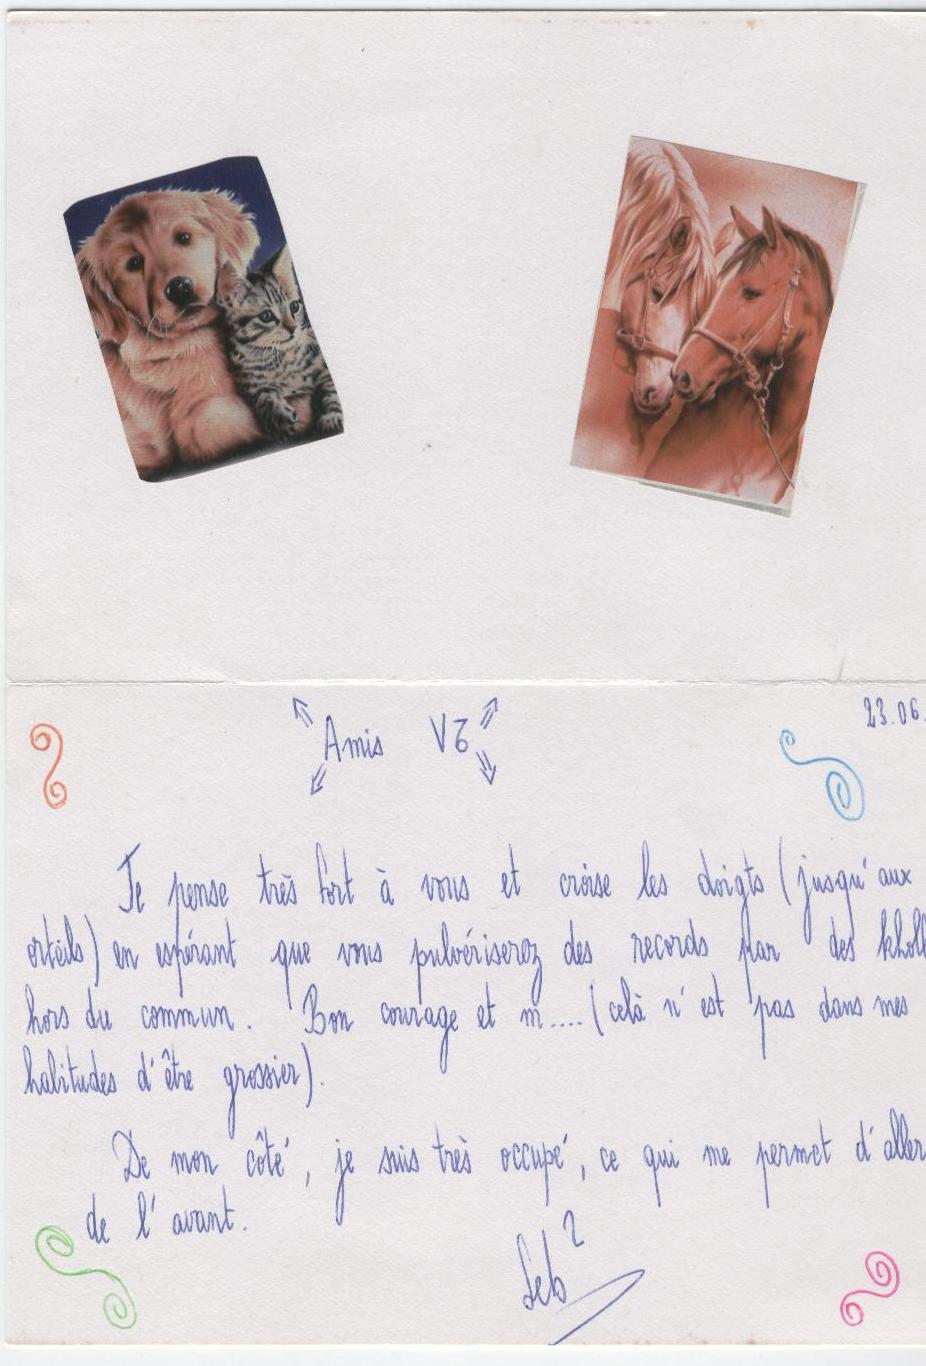 23.06.
Amis V
Je pense très fort à vous et croise les doigts (jusqu'aux
orteils) en espérant que vous pulvériserez des records par des kholl
hors du commun. Bon courage et m.... (celà n'est pas dans mes
habitudes d'être grossier).
De mon côté, je suis très occupé, ce qui me permet d'aller
de l'avant.
Seb²